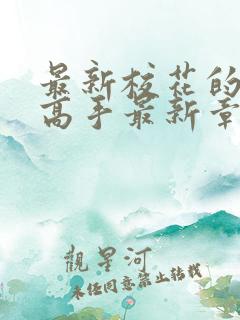 最新校花的
高手最新章
觀星河
未经同意禁止转载